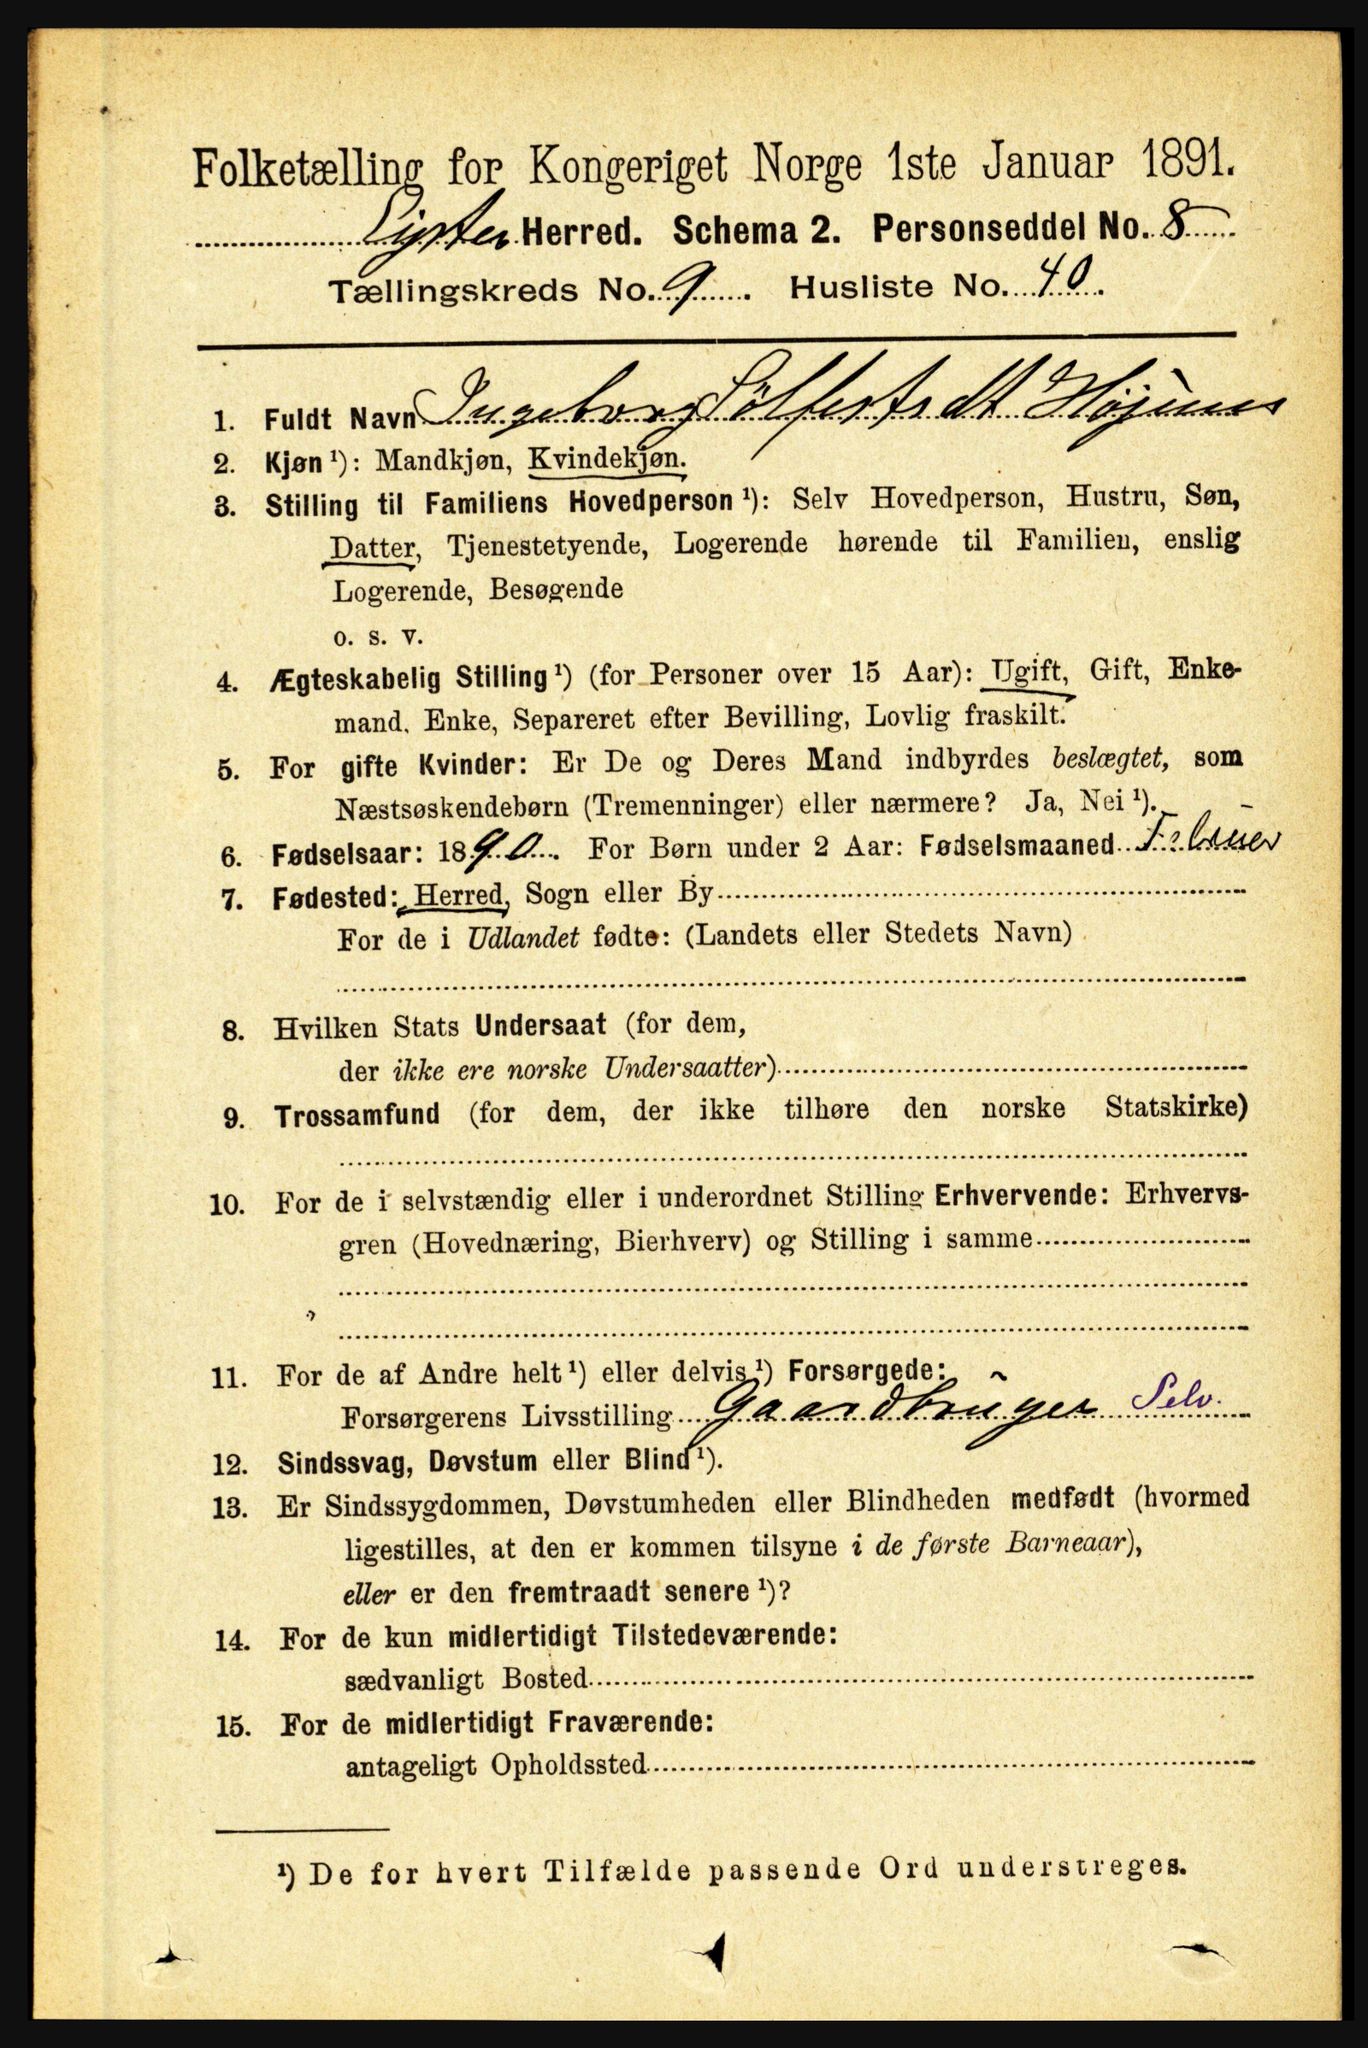 Folketælling for Kongeriget Norge 1ste Januar 1891.
Lyster Herred. Schema 2. Personseddel No. 8
Tællingskreds No. 9. Husliste No. 40.
1. Fuldt Navn Ingeborg Sølfestsdt Højum
2. Kjøn ¹): Mandkjøn, Kvindekjøn.
3. Stilling til Familiens Hovedperson ¹): Selv Hovedperson, Hustru, Søn,
Datter, Tjenestetyende, Logerende hørende til Familien, enslig
Logerende, Besøgende
o. s. v.
4. Ægteskabelig Stilling ¹) (for Personer over 15 Aar): Ugift, Gift, Enke-
mand, Enke, Separeret efter Bevilling, Lovlig fraskilt.
5. For gifte Kvinder: Er De og Deres Mand indbyrdes beslægtet, som
Næstsøskendebørn (Tremenninger) eller nærmere? Ja, Nei ¹).
6. Fødselsaar: 1890. For Børn under 2 Aar: Fødselsmaaned Februer
7. Fødested: Herred, Sogn eller By
For de i Udlandet fødte: (Landets eller Stedets Navn)
8. Hvilken Stats Undersaat (for dem,
der ikke ere norske Undersaatter)
9. Trossamfund (for dem, der ikke tilhøre den norske Statskirke)
10. For de i selvstændig eller i underordnet Stilling Erhvervende: Erhvervs-
gren (Hovednæring, Bierhverv) og Stilling i samme
11. For de af Andre helt ¹) eller delvis ¹) Forsørgede:
Forsørgerens Livsstilling Gaardbruger Selv.
12. Sindssvag, Døvstum eller Blind ¹).
13. Er Sindssygdommen, Døvstumheden eller Blindheden medfødt (hvormed
ligestilles, at den er kommen tilsyne i de første Barneaar),
eller er den fremtraadt senere ¹)?
14. For de kun midlertidigt Tilstedeværende:
sædvanligt Bosted
15. For de midlertidigt Fraværende:
antageligt Opholdssted
¹) De for hvert Tilfælde passende Ord understreges.